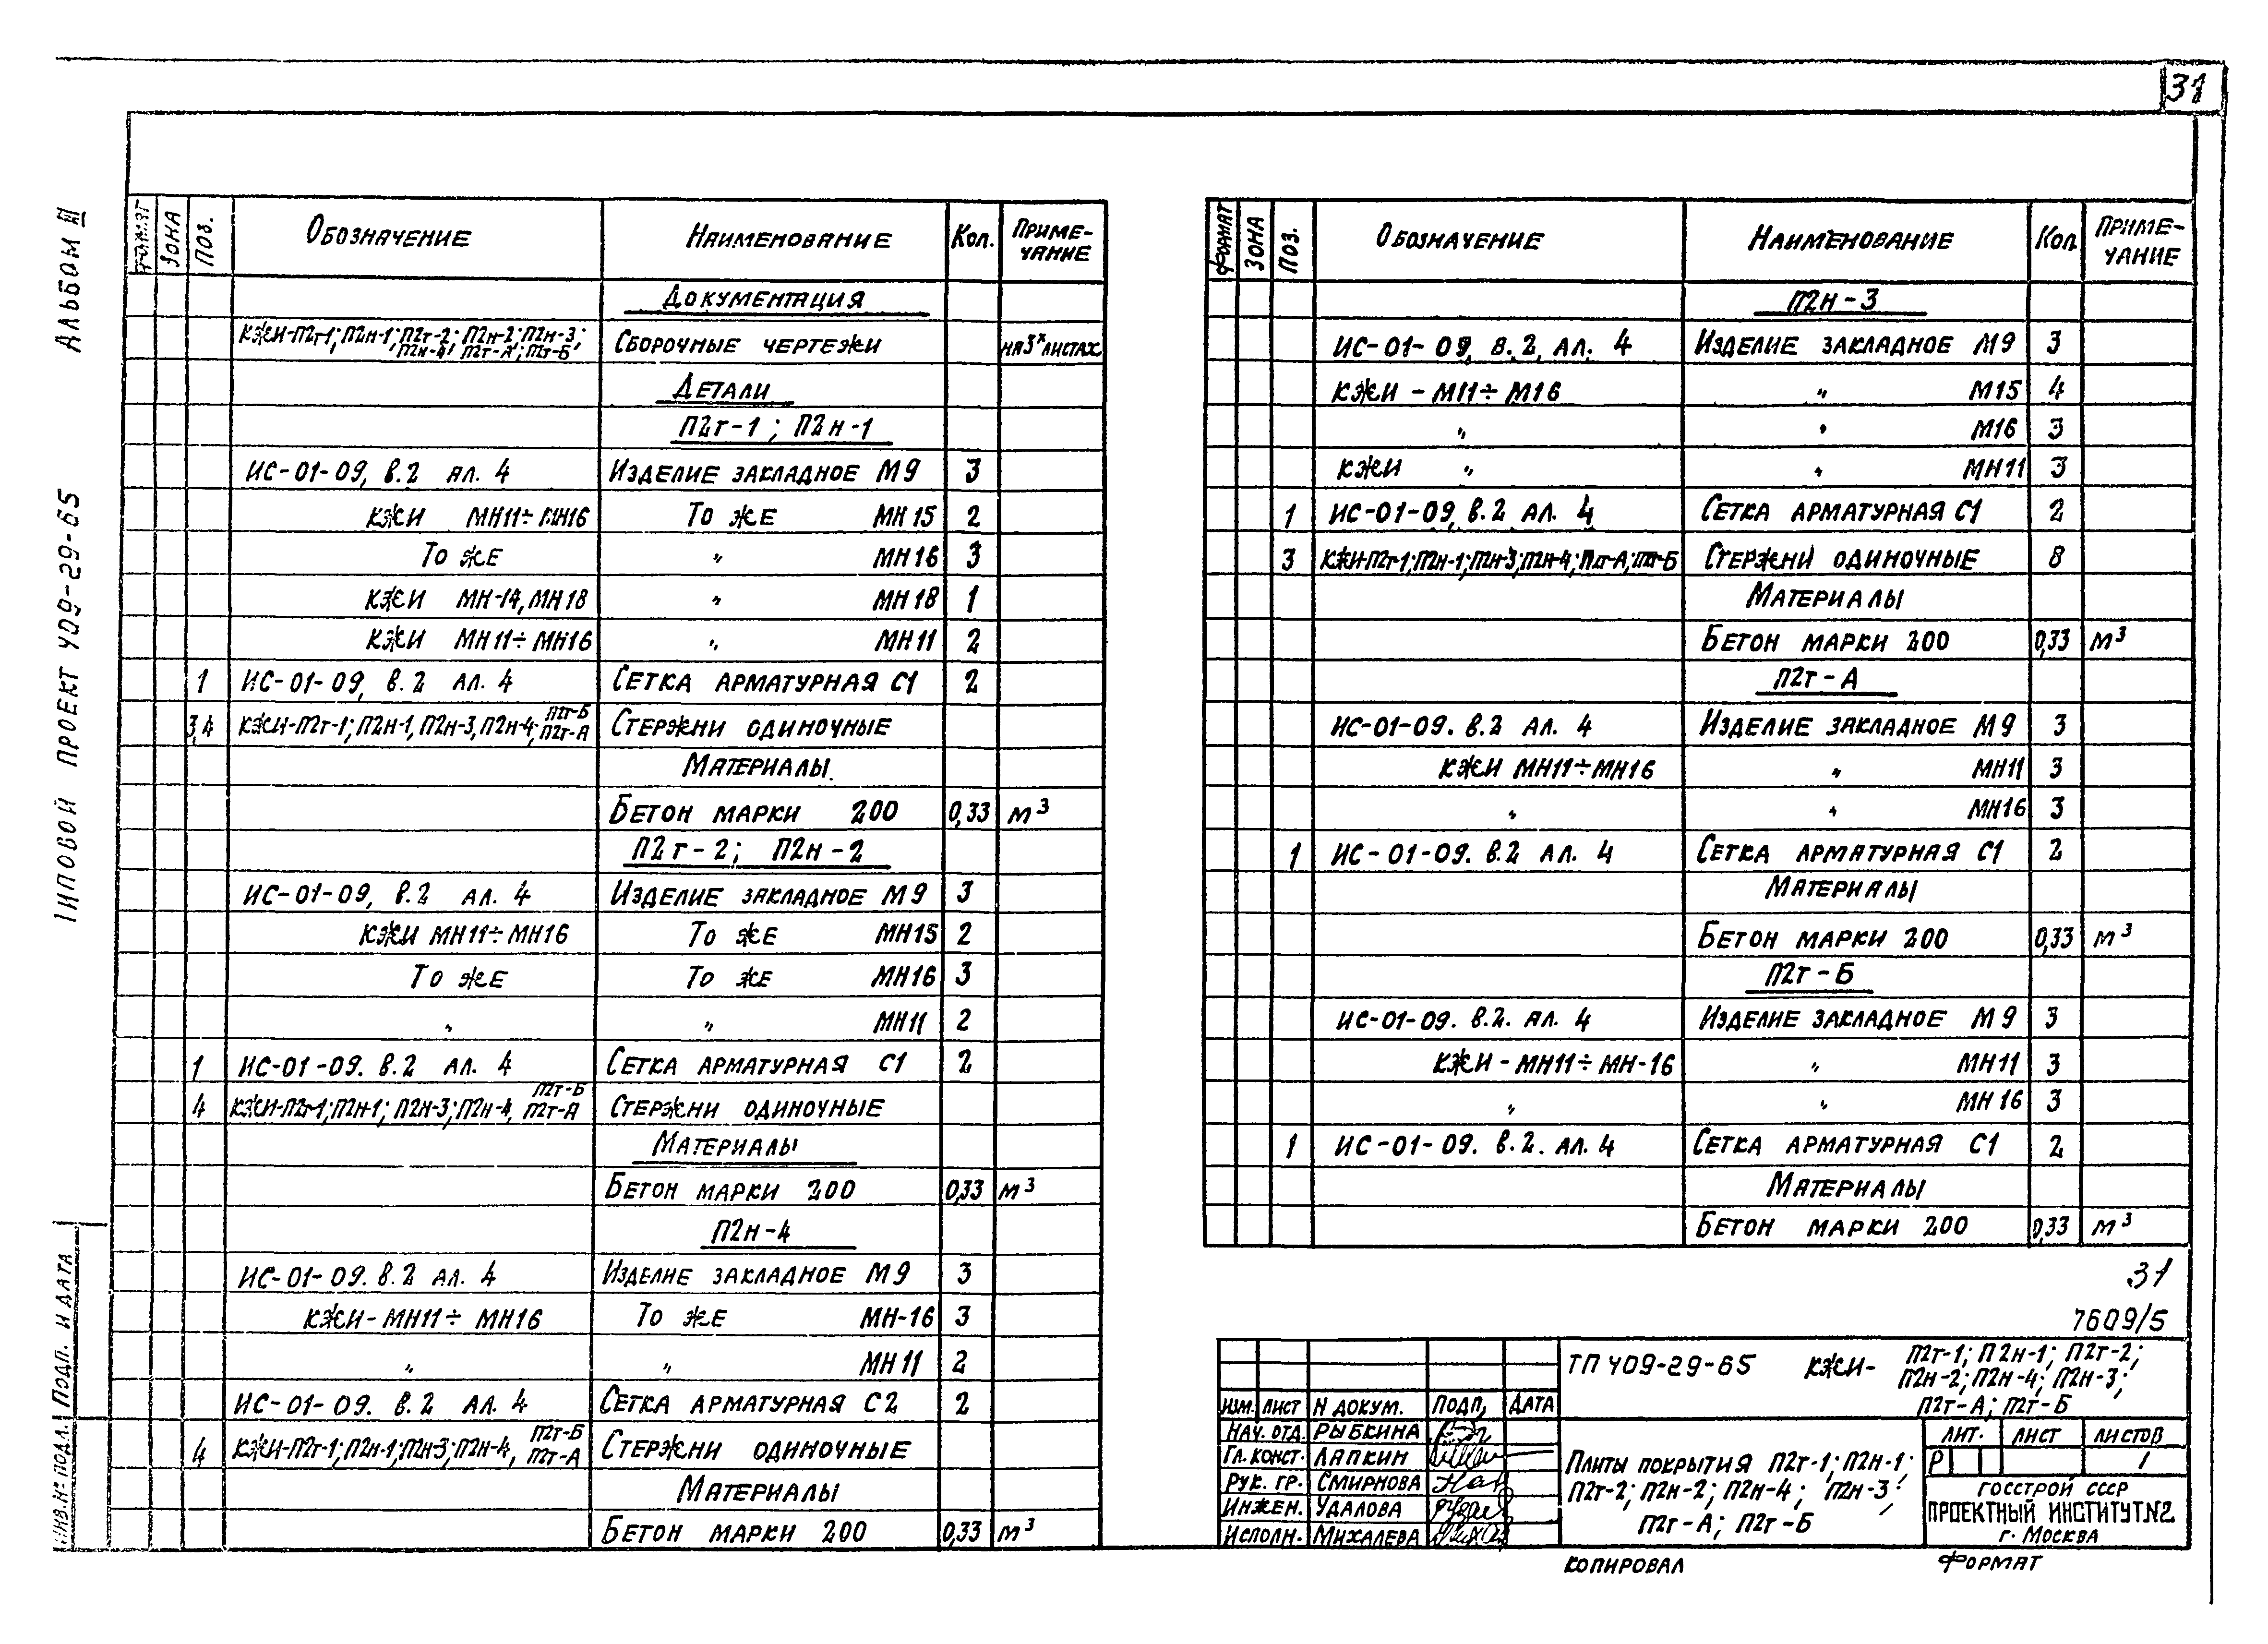 31
Альбом III
Типовой проект 409-29-65
Инв.№ подл. Подп. и дата
Формат Зона Поз. Обозначение Наименование Кол. Приме-
чание
Документация
КЖИ-П2т-1; П2н-1; П2т-2; П2н-2; П2н-3;
П2н-4; П2т-А; П2т-Б Сборочные чертежи на 3х листах
Детали
П2т-1; П2н-1
ИС-01-09, в.2 ал. 4 Изделие закладное М9 3
КЖИ МН11÷МН16 То же МН15 2
То же " МН16 3
КЖИ МН-14, МН18 " МН18 1
КЖИ МН11÷МН16 " МН11 2
1 ИС-01-09, в.2 ал. 4 Сетка арматурная С1 2
3,4 КЖИ-П2т-1; П2н-1, П2н-3, П2н-4; П2т-Б
П2т-А Стержни одиночные
Материалы
Бетон марки 200 0,33 м³
П2т-2; П2н-2
ИС-01-09, в.2 ал. 4 Изделие закладное М9 3
КЖИ МН11÷МН16 То же МН15 2
То же То же МН16 3
" " МН11 2
1 ИС-01-09. в.2 ал. 4 Сетка арматурная С1 2
4 КЖИ-П2т-1; П2н-1; П2н-3; П2н-4, П2т-Б
П2т-А Стержни одиночные
Материалы
Бетон марки 200 0,33 м³
П2н-4
ИС-01-09. в.2 ал. 4 Изделие закладное М9 3
КЖИ-МН11÷МН16 То же МН-16 3
" " МН11 2
ИС-01-09. в.2 ал. 4 Сетка арматурная С2 2
4 КЖИ-П2т-1; П2н-1; П2н-3; П2н-4, П2т-Б
П2т-А Стержни одиночные
Материалы
Бетон марки 200 0,33 м³
Формат Зона Поз. Обозначение Наименование Кол Приме-
чание
П2н-3
ИС-01-09, в.2, ал. 4 Изделие закладное М9 3
КЖИ-М11÷М16 " М15 4
" " М16 3
КЖИ " " МН11 3
1 ИС-01-09, в.2 ал. 4 Сетка арматурная С1 2
3 КЖИ-П2т-1; П2н-1; П2н-3; П2н-4; П2т-А; П2т-Б Стержни одиночные 8
Материалы
Бетон марки 200 0,33 м³
П2т-А
ИС-01-09. в.2 ал. 4 Изделие закладное М9 3
КЖИ МН11÷МН16 " МН11 3
" " МН16 3
1 ИС-01-09. в.2 ал. 4 Сетка арматурная С1 2
Материалы
Бетон марки 200 0,33 м³
П2т-Б
ИС-01-09. в.2. ал. 4 Изделие закладное М9 3
КЖИ-МН11÷МН-16 " МН11 3
" " МН16 3
1 ИС-01-09. в.2. ал. 4 Сетка арматурная С1 2
Материалы
Бетон марки 200 0,33 м³
31
7609/5
ТП 409-29-65 КЖИ- П2т-1; П2н-1; П2т-2;
П2н-2; П2н-4; П2н-3;
П2т-А; П2т-Б
Изм. Лист N докум. Подп. Дата
Нач. отд. Рыбкина
Гл. конст. Ляпкин
Рук. гр. Смирнова
Инжен. Удалова
Исполн. Михалева
Плиты покрытия П2т-1; П2н-1;
П2т-2; П2н-2; П2н-4; П2н-3;
П2т-А; П2т-Б
Лит. Лист Листов
Р 1
Госстрой СССР
Проектный институт №2
г. Москва
Копировал Формат